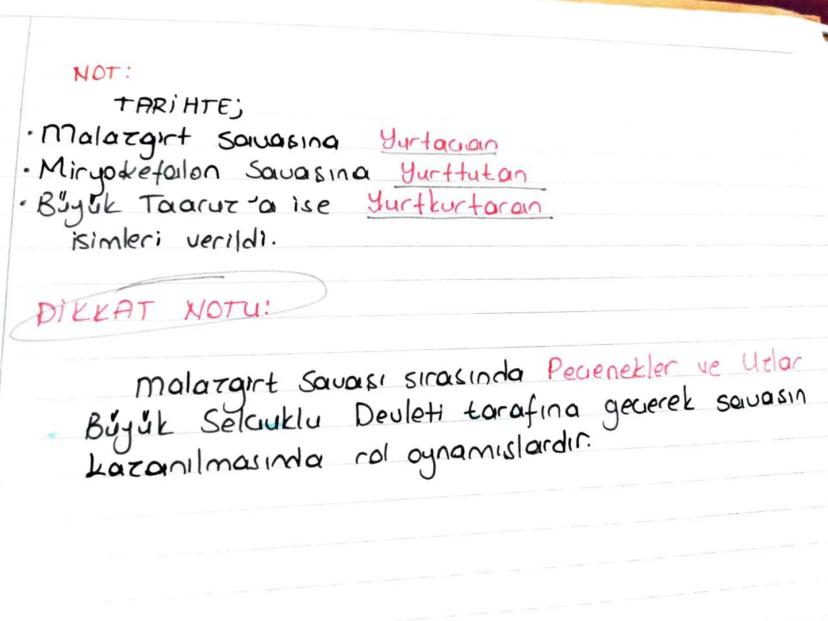 NOT:
TARİHTE;
• Malazgirt savaşına Yurtaçan
• Miryokefalon Savaşına Yurttutan
• Büyük Taaruz'a ise Yurtkurtaran
isimleri verildi.
DİKKAT NOTU:
Malazgirt Savaşı sırasında Peçenekler ve Uzlar
Büyük Selçuklu Devleti tarafına geçerek savaşın
kazanılmasında rol oynamışlardır.